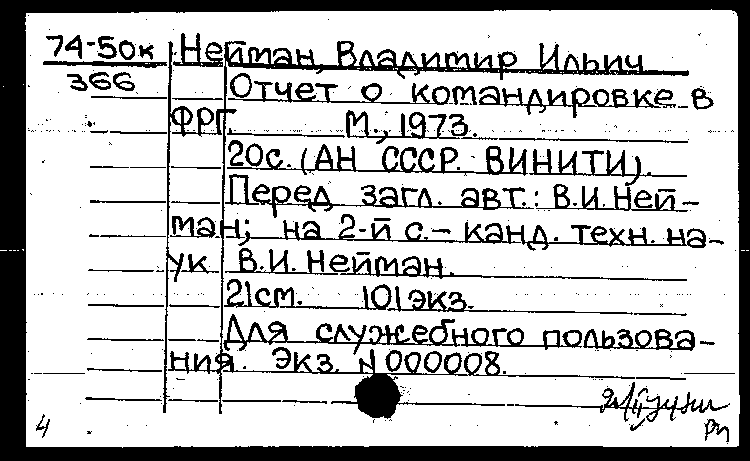 74-50к Нейман, Владимир Ильич
366 Отчет о командировке в
ФРГ. М., 1973.
20с. (АН СССР. ВИНИТИ).
Перед загл. авт.: В.И. Ней-
ман; на 2-й с. – канд. техн. на-
ук В.И. Нейман.
21см. 101 экз.
Для служебного пользова-
ния. Экз. N 000008.
4